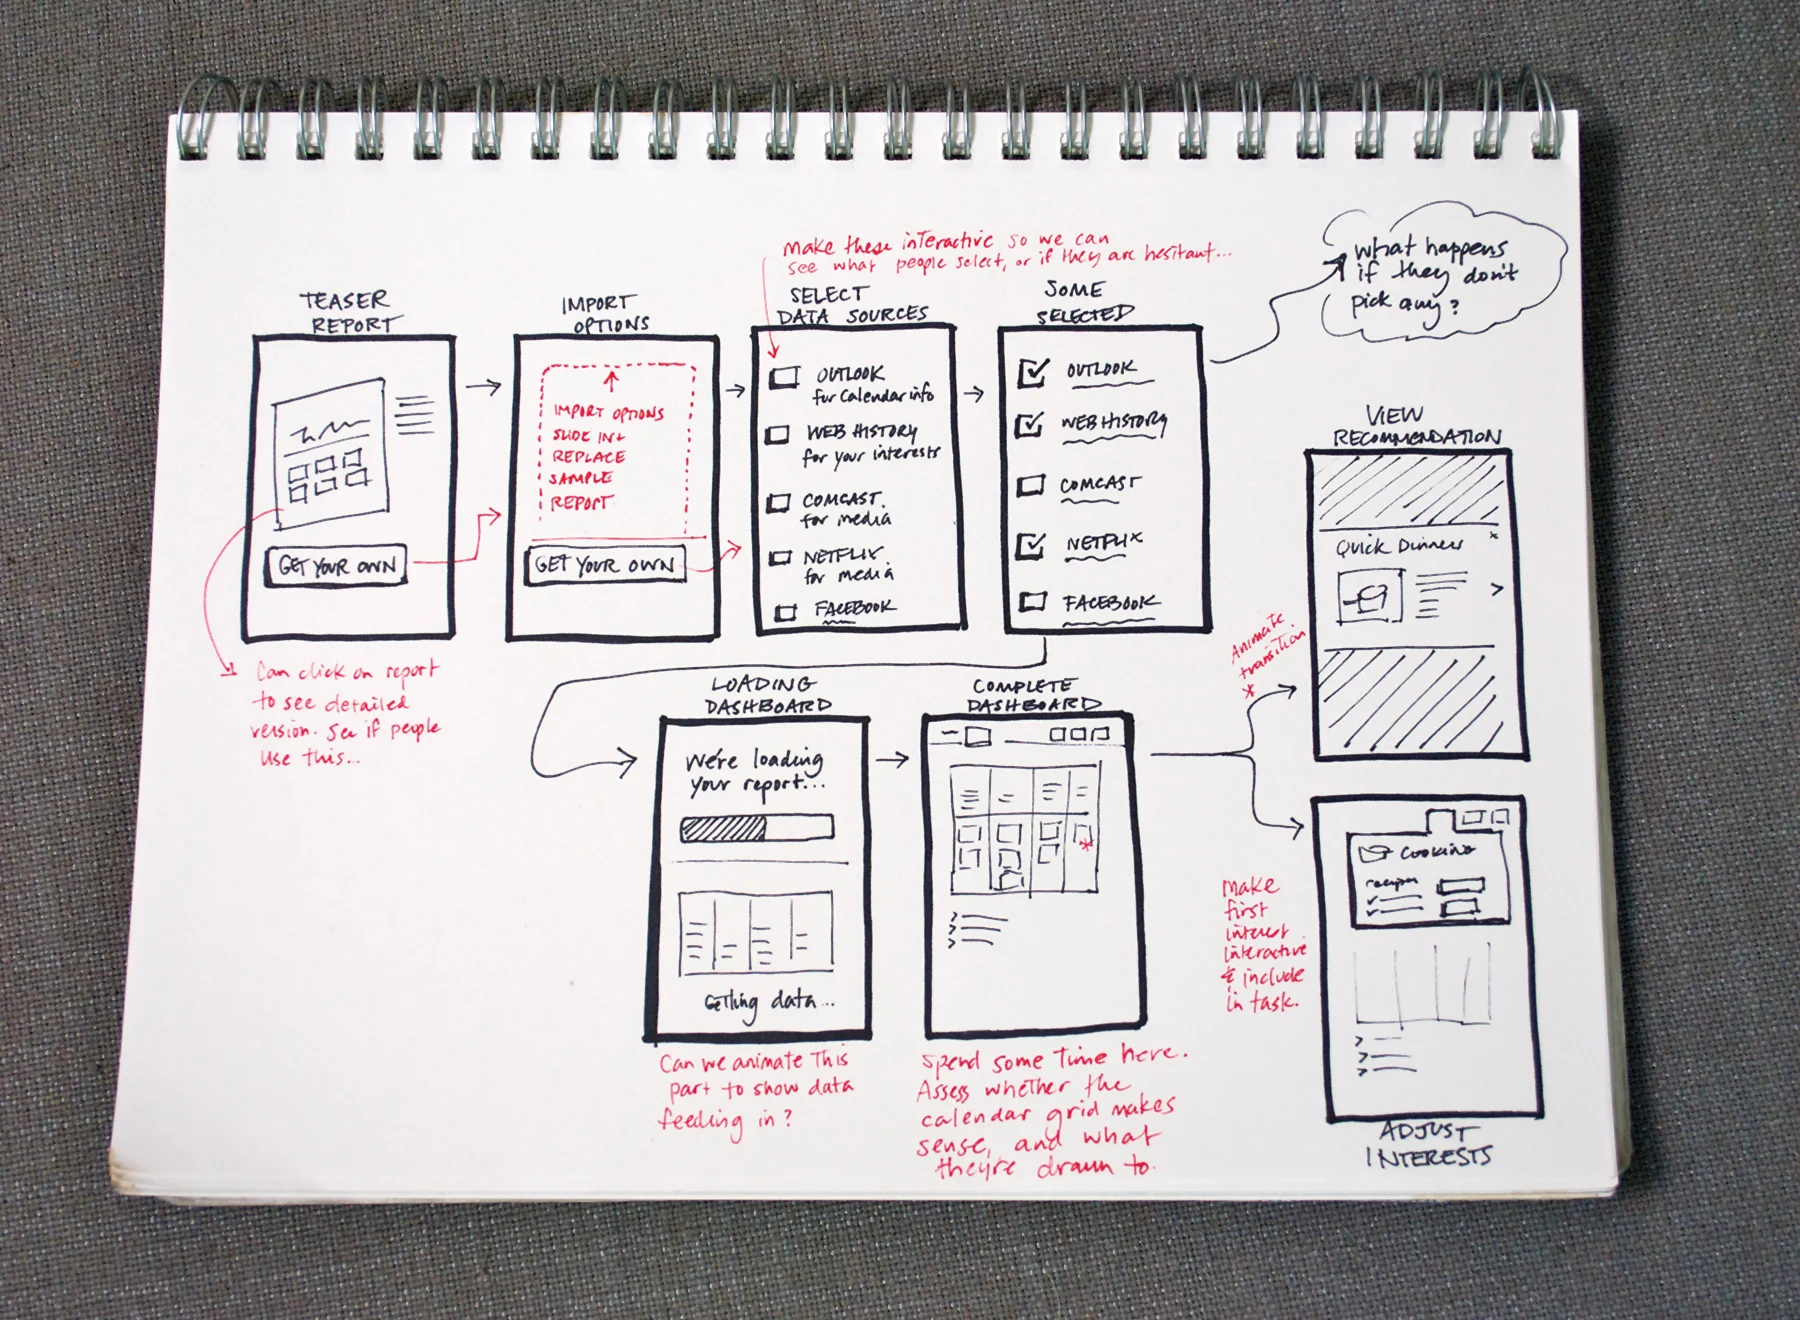 make these interactive so we can
see what people select, or if they are hesitant...
what happens
if they don't
pick any?
TEASER
REPORT
GET YOUR OWN
Can click on report
to see detailed
version. See if people
use this...
IMPORT
OPTIONS
IMPORT OPTIONS
SLIDE IN +
REPLACE
SAMPLE
REPORT
GET YOUR OWN
SELECT
DATA SOURCES
OUTLOOK
for Calendar info
WEB HISTORY
for your interests
COMCAST.
for media
NETFLIX
for media
FACEBOOK
SOME
SELECTED
OUTLOOK
WEB HISTORY
COMCAST
NETFLIX
FACEBOOK
LOADING
DASHBOARD
We're loading
your report...
Getting data...
Can we animate this
part to show data
feeding in?
COMPLETE
DASHBOARD
*
Spend some time here.
Assess whether the
calendar grid makes
sense, and what
they're drawn to.
Animate
transition
*
VIEW
RECOMMENDATION
Quick Dinners
x
>
make
first
interest
interactive
& include
in task.
Cooking
recipes
ADJUST
INTERESTS